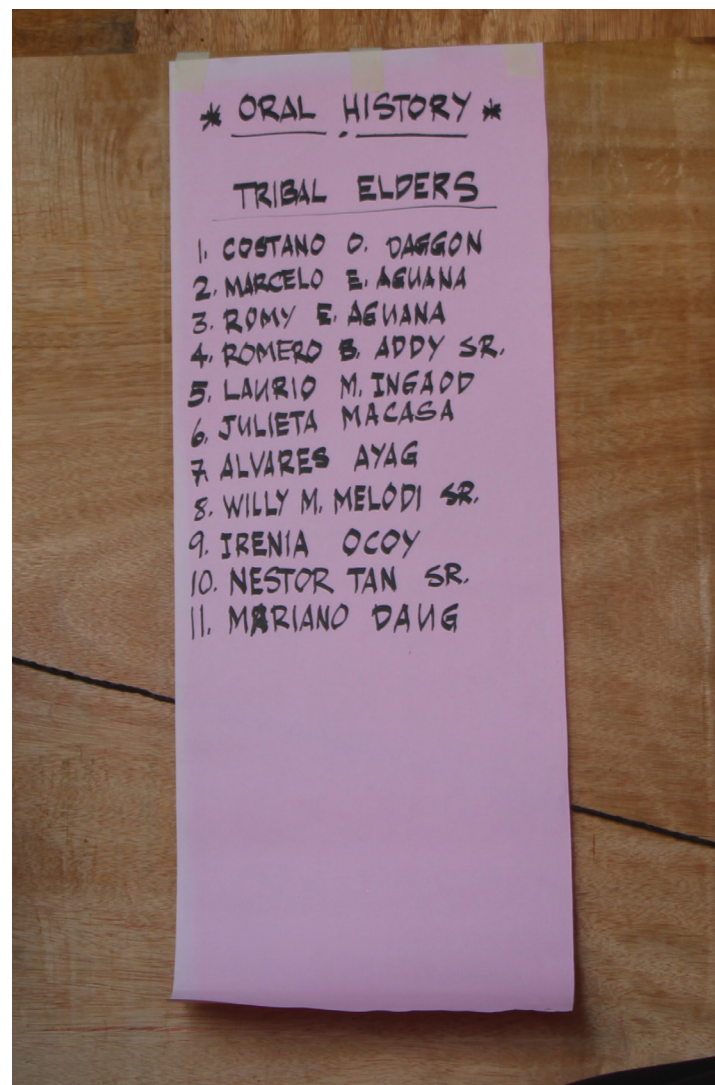 * ORAL HISTORY *
TRIBAL ELDERS
1. COSTANO O. DAGGON
2. MARCELO E. AGUANA
3. ROMY E. AGUANA
4. ROMERO B. ADDY SR.
5. LAURIO M. INGAOD
6. JULIETA MACASA
7. ALVARES AYAG
8. WILLY M. MELODI SR.
9. IRENIA OCOY
10. NESTOR TAN SR.
11. MARIANO DAUG